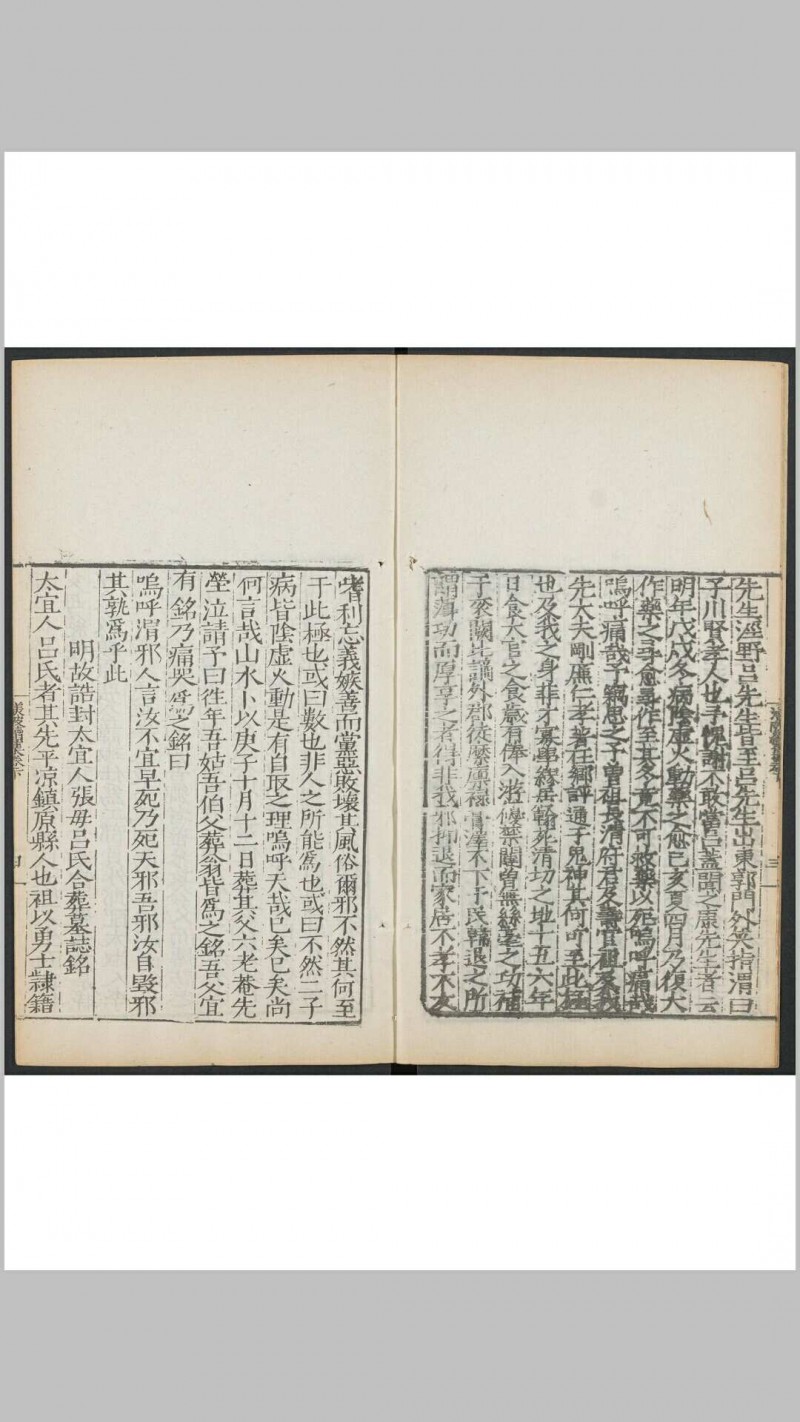 先生涇野呂先生皆至呂先生出東郭門外哭指渭曰
子川賢孝人也予愧謝不敢當呂蓋聞之康先生者云
明年戊戌冬病陰虛火動藥之愈己亥夏四月乃復大
作藥之尋愈尋作至其冬竟不可救藥以死嗚呼痛哉
嗚呼痛哉予竊思之予曽祖長清府君及壽官祖及我
先大夫剛廉仁孝著在鄉評通于鬼神其何吖至此極
也及我之身非才寡學繆居翰死清切之地十五六年
日食大官之食歲有俸入游 禁闥曽無絲毫之功補
于衮闕比謫外郡徒縻廩祿膏澤不下于民韓退之所
謂薄功而厚享之者得非我邪抑退而家居不孝不友
嗜利忘義嫉善而黨惡敗壞其風俗爾邪不然其何至
于此極也或曰數也非人之所能為也或曰不然二子
病皆陰虛火動是有自取之理嗚呼天哉已矣已矣尚
何言哉山水卜以庚子十月十二日葬其父六老菴先
塋泣請予曰徃年吾姑吾伯父葬翁皆為之銘吾父宜
有銘乃痛哭為之銘曰
嗚呼渭邪人言汝不宜早死乃死天邪吾邪汝自毀邪
其孰為乎此
明故誥封太宜人張母呂氏合葬墓誌銘
太宜人呂氏者其先平凉鎮原縣人也祖以勇士隸籍
三
四